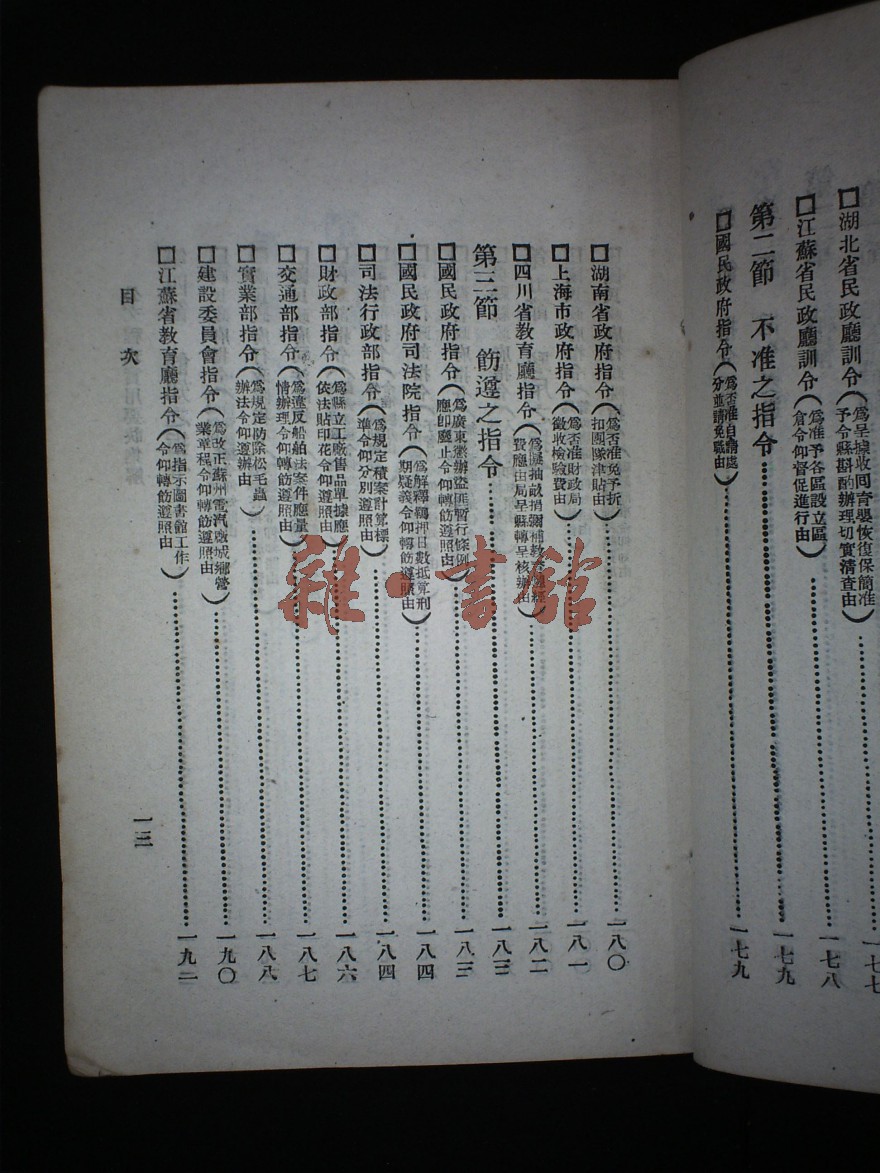 □湖北省民政廳訓令(爲呈據收囘育嬰恢復保簡准予令縣斟酌辦理切實清查由)……一七七
□江蘇省民政廳訓令(爲准予各區設立區倉令仰督促進行由)……一七八
第二節 不准之指令……一七九
□國民政府指令(爲否准自請處分並請免職由)……一七九
□湖南省政府指令(爲否准免予折扣團隊津貼由)……一八〇
□上海市政府指令(爲否准財政局徵收檢驗費由)……一八一
□四川省教育廳指令(爲 抽畝捐彌補教 經費應由局呈縣轉呈核辦由)……一八二
第三節 飭遵之指令……一八三
□國民政府指令(爲廣東懲辦盜匪暫行條例應卽廢止令仰轉飭遵照由)……一八三
□國民政府司法院指令(爲解釋羈押日數抵算刑期疑義令仰轉飭遵照由)……一八四
□司法行政部指令(爲規定積案計算標準令仰分別遵照由)……一八四
□財政部指令(爲縣立工廠售品單據應依法貼印花令仰遵照由)……一八六
□交通部指令(爲違反船舶法案件應量情辦理令仰轉飭遵照由)……一八七
□實業部指令(爲規定防除松毛蟲辦法令仰遵辦由)……一八八
□建設委員會指令(爲改正蘇州電汽廠城鄉營業章程令仰轉飭遵照由)……一九〇
□江蘇省教育廳指令(爲指示圖書館工作令仰轉飭遵照由)……一九二
目次
一三
雜·書館